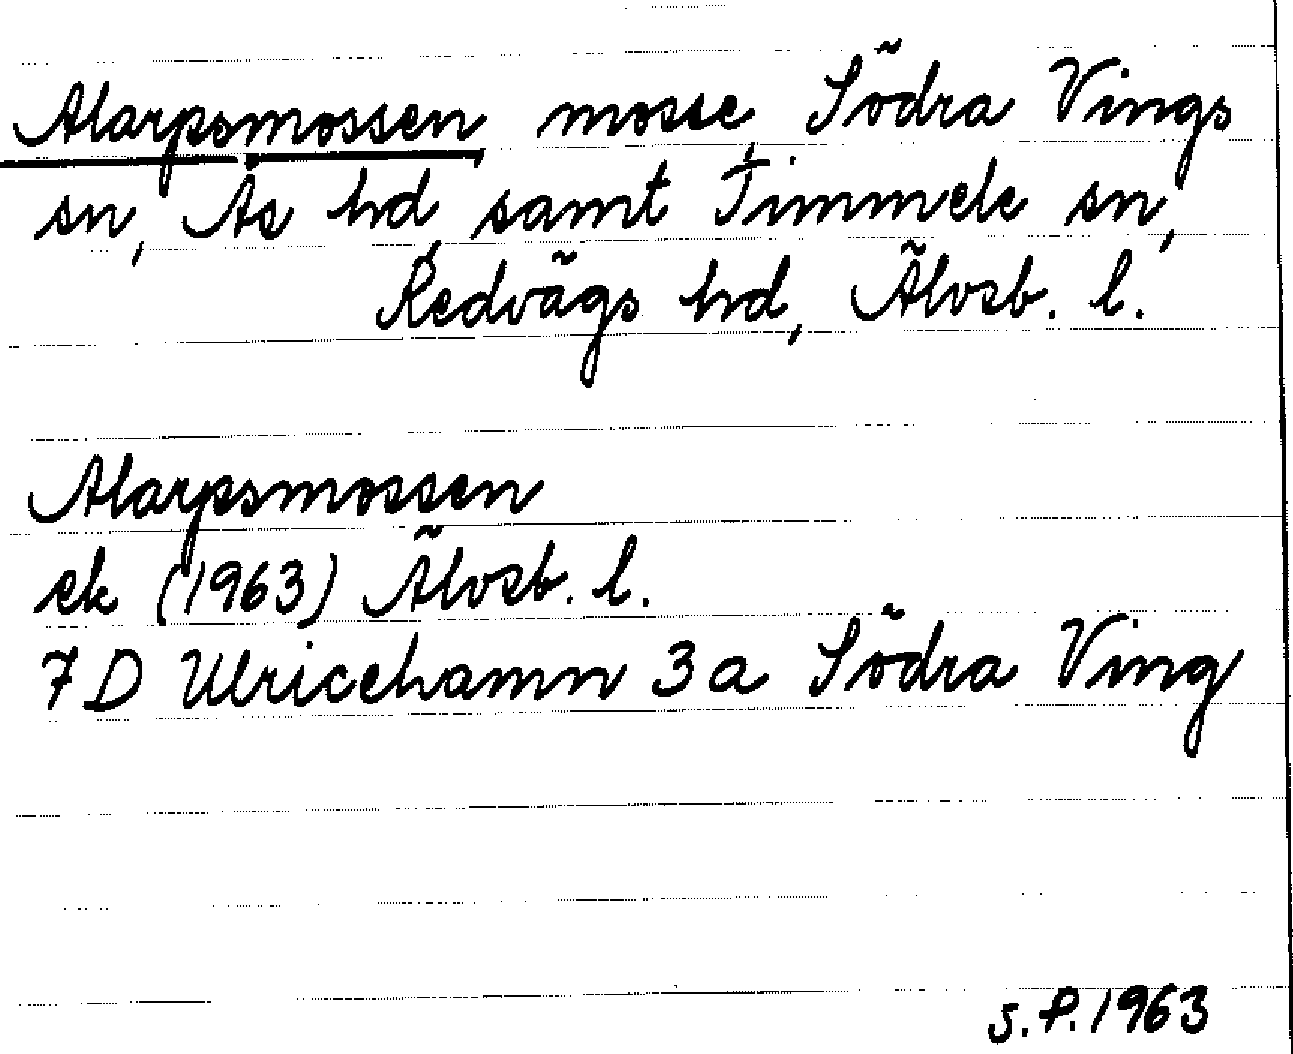 Alarpsmossen mosse, Södra Vings
sn, Ås hd, samt Timmele sn,
Redvägs hd, Älvsb. l.
Alarpsmossen
ek (1963) Älvsb. l.
7 D Ulricehamn 3 a Södra Ving
S.P. 1963